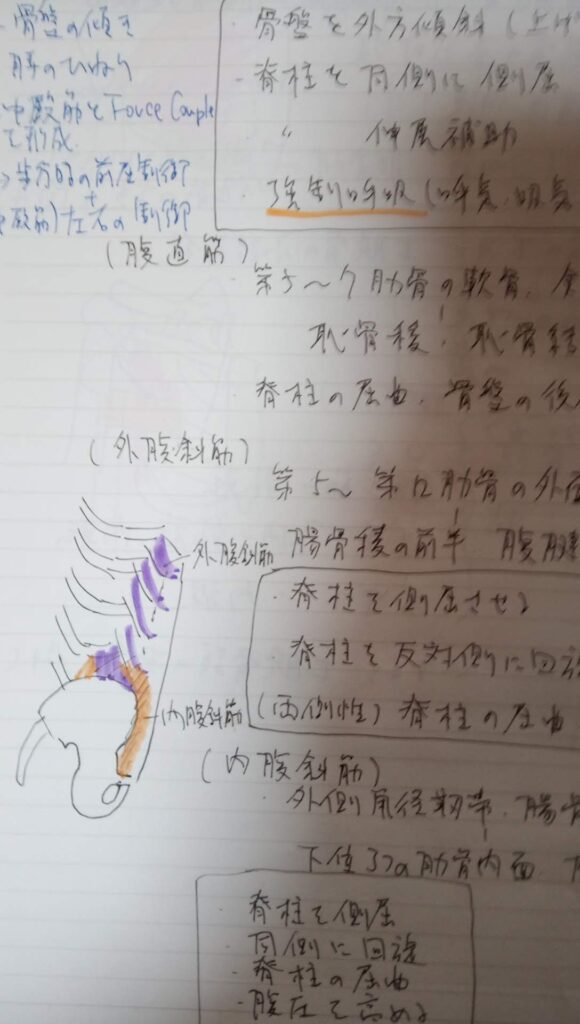 ・骨盤の傾き
骨盤を外方傾斜(上げ
体のひねり
・脊柱を同側に側屈
中殿筋とForce Couple
〃 伸展補助
で形成
→歩行時の前圧制御
・強制呼吸(呼気、吸気
中殿筋)左右の制御
(腹直筋)
・第5〜7肋骨の軟骨、
恥骨稜、恥骨結
脊柱の屈曲、骨盤の後
(外腹斜筋)
第5〜第12肋骨の外面
外腹斜筋
腸骨稜の前半 腹
・脊柱を側屈させる
・脊柱を反対側に回旋
内腹斜筋
(両側性)脊柱の屈曲
(内腹斜筋)
・外側鼠径靭帯、腸骨
下位3つの肋骨内面
・脊柱を側屈
・同側に回旋
・脊柱の屈曲
・腹圧を高める